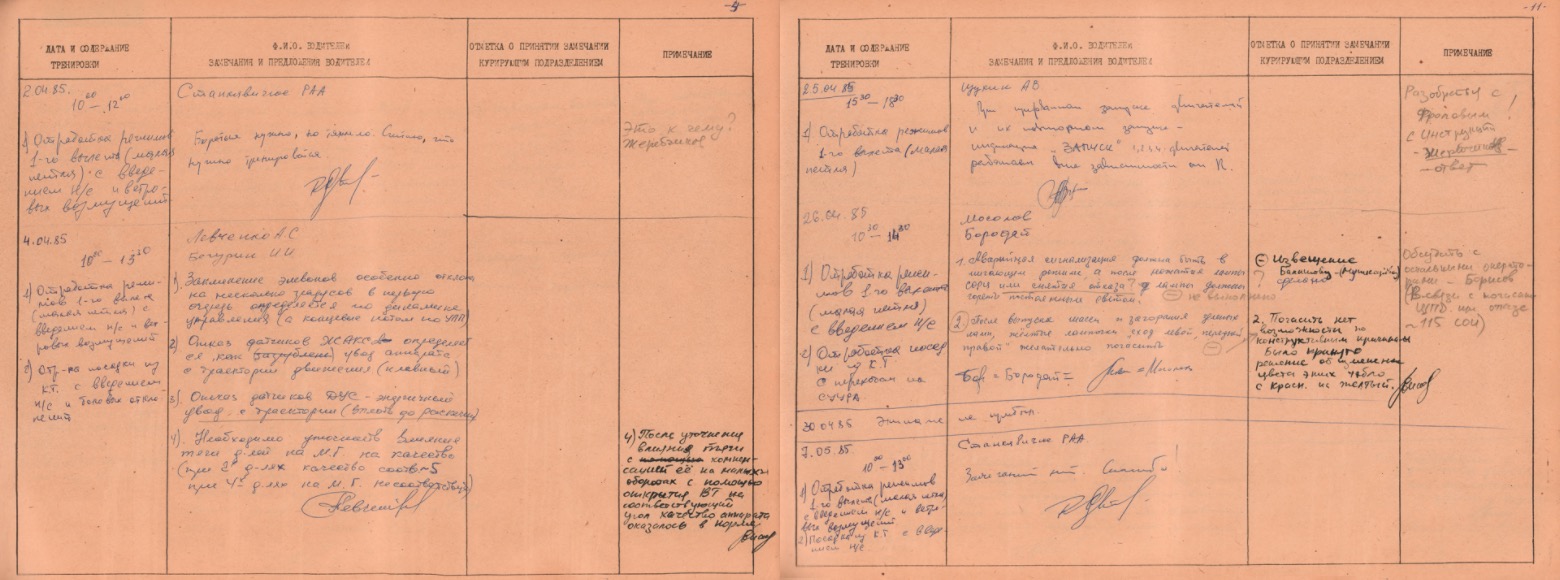 -9-
ДАТА И СОДЕРЖАНИЕ
ТРЕНИРОВКИ
Ф.И.О. ВОДИТЕЛЕЙ
ЗАМЕЧАНИЯ И ПРЕДЛОЖЕНИЯ ВОДИТЕЛЕЙ
ОТМЕТКА О ПРИНЯТИИ ЗАМЕЧАНИЙ
КУРИРУЮЩИМ ПОДРАЗДЕЛЕНИЕМ
ПРИМЕЧАНИЕ
2.04.85.
10 00 – 12 00
1) Отработка режимов
1-го вылета (малая
петля) с введе-
нием н/с и ветро-
вых возмущений
Станкявичюс РАА
нужно, но тяжело. Считаю, что
нужно тренироваться.
Это к чему?
Жеребчиков
4.04.85
10 00 – 13 30
1) Отработка режи-
мов 1-го вылета
(малая петля) с
введением н/с и вет-
ровых возмущений
2) Отр-ка посадки из
К.Т. с введением
н/с и боковых откло-
нений
Левченко А.С
1). Заклинение элевонов особенно отклон.
на несколько градусов в первую
очередь определяется по динамике
управления (а концевые потом по
2) Отказ датчиков определяет-
ся, как увод аппарата
с траектории движения (плавный)
3). Отказ датчиков ДУС – энергичный
увод с траектории (вплоть до раскачки)
4). Необходимо уточнить влияние
тяги д-лей на М.Г. на качество
(при 2х д-лях качество соотв ~5
при 4х д-лях на М.Г. не соответствует)
4) После уточнения
влияния тяги
с помощью компен-
сацией её на малых
оборотах с помощью
открытия ВТ на
соответствующий
угол качество аппарата
оказалось в норме
-11-
ДАТА И СОДЕРЖАНИЕ
ТРЕНИРОВКИ
Ф.И.О. ВОДИТЕЛЕЙ
ЗАМЕЧАНИЯ И ПРЕДЛОЖЕНИЯ ВОДИТЕЛЕЙ
ОТМЕТКА О ПРИНЯТИИ ЗАМЕЧАНИЙ
КУРИРУЮЩИМ ПОДРАЗДЕЛЕНИЕМ
ПРИМЕЧАНИЕ
25.04.85
15 30 – 18 30
1) Отработка режимов
1-го вылета (малая
петля)
Щукин АВ
При запуске двигателей
и их повторном запуске –
индикация „ЗАПУСК" 1,2,3,4 двигателей
работает вне зависимости от
Разобраться с
Фроловым!
с инструкцией
– Жеребчиков
– ответ
26.04.85
10 30 – 14 30
1) Отработка режи-
мов 1-го вылета
(малая петля)
с введением н/с
2) Отработка посад-
ки из К.Т.
с переходом на
Мосолов
Бородай
1. Аварийная сигнализация должна быть в
мигающем режиме, а после нажатия кнопки
или снятия отказа лампы должны
гореть постоянным светом. не выполнено
2. После выпуска шасси и загорания зеленых
ламп, желтые лампочки „сход левой, передней,
правой" желательно погасить
= Бородай =
Извещение
сделано
2. Погасить нет
возможности по
конструктивным причинам
Было принято
решение об изменении
цвета этих табло
с красн. на желтый.
Обсудить с
остальными операто-
рами – Борисов
(В связи с
при отказе
~ 115
30.04.85
7.05.85.
10 00 – 13 00
1) Отработка режимов
1-го вылета (малая петля)
с введением н/с и ветро-
вых возмущений
2) Посадка из К.Т. с введе-
нием н/с
Станкявичюс РАА
Замечаний нет. Спасибо!